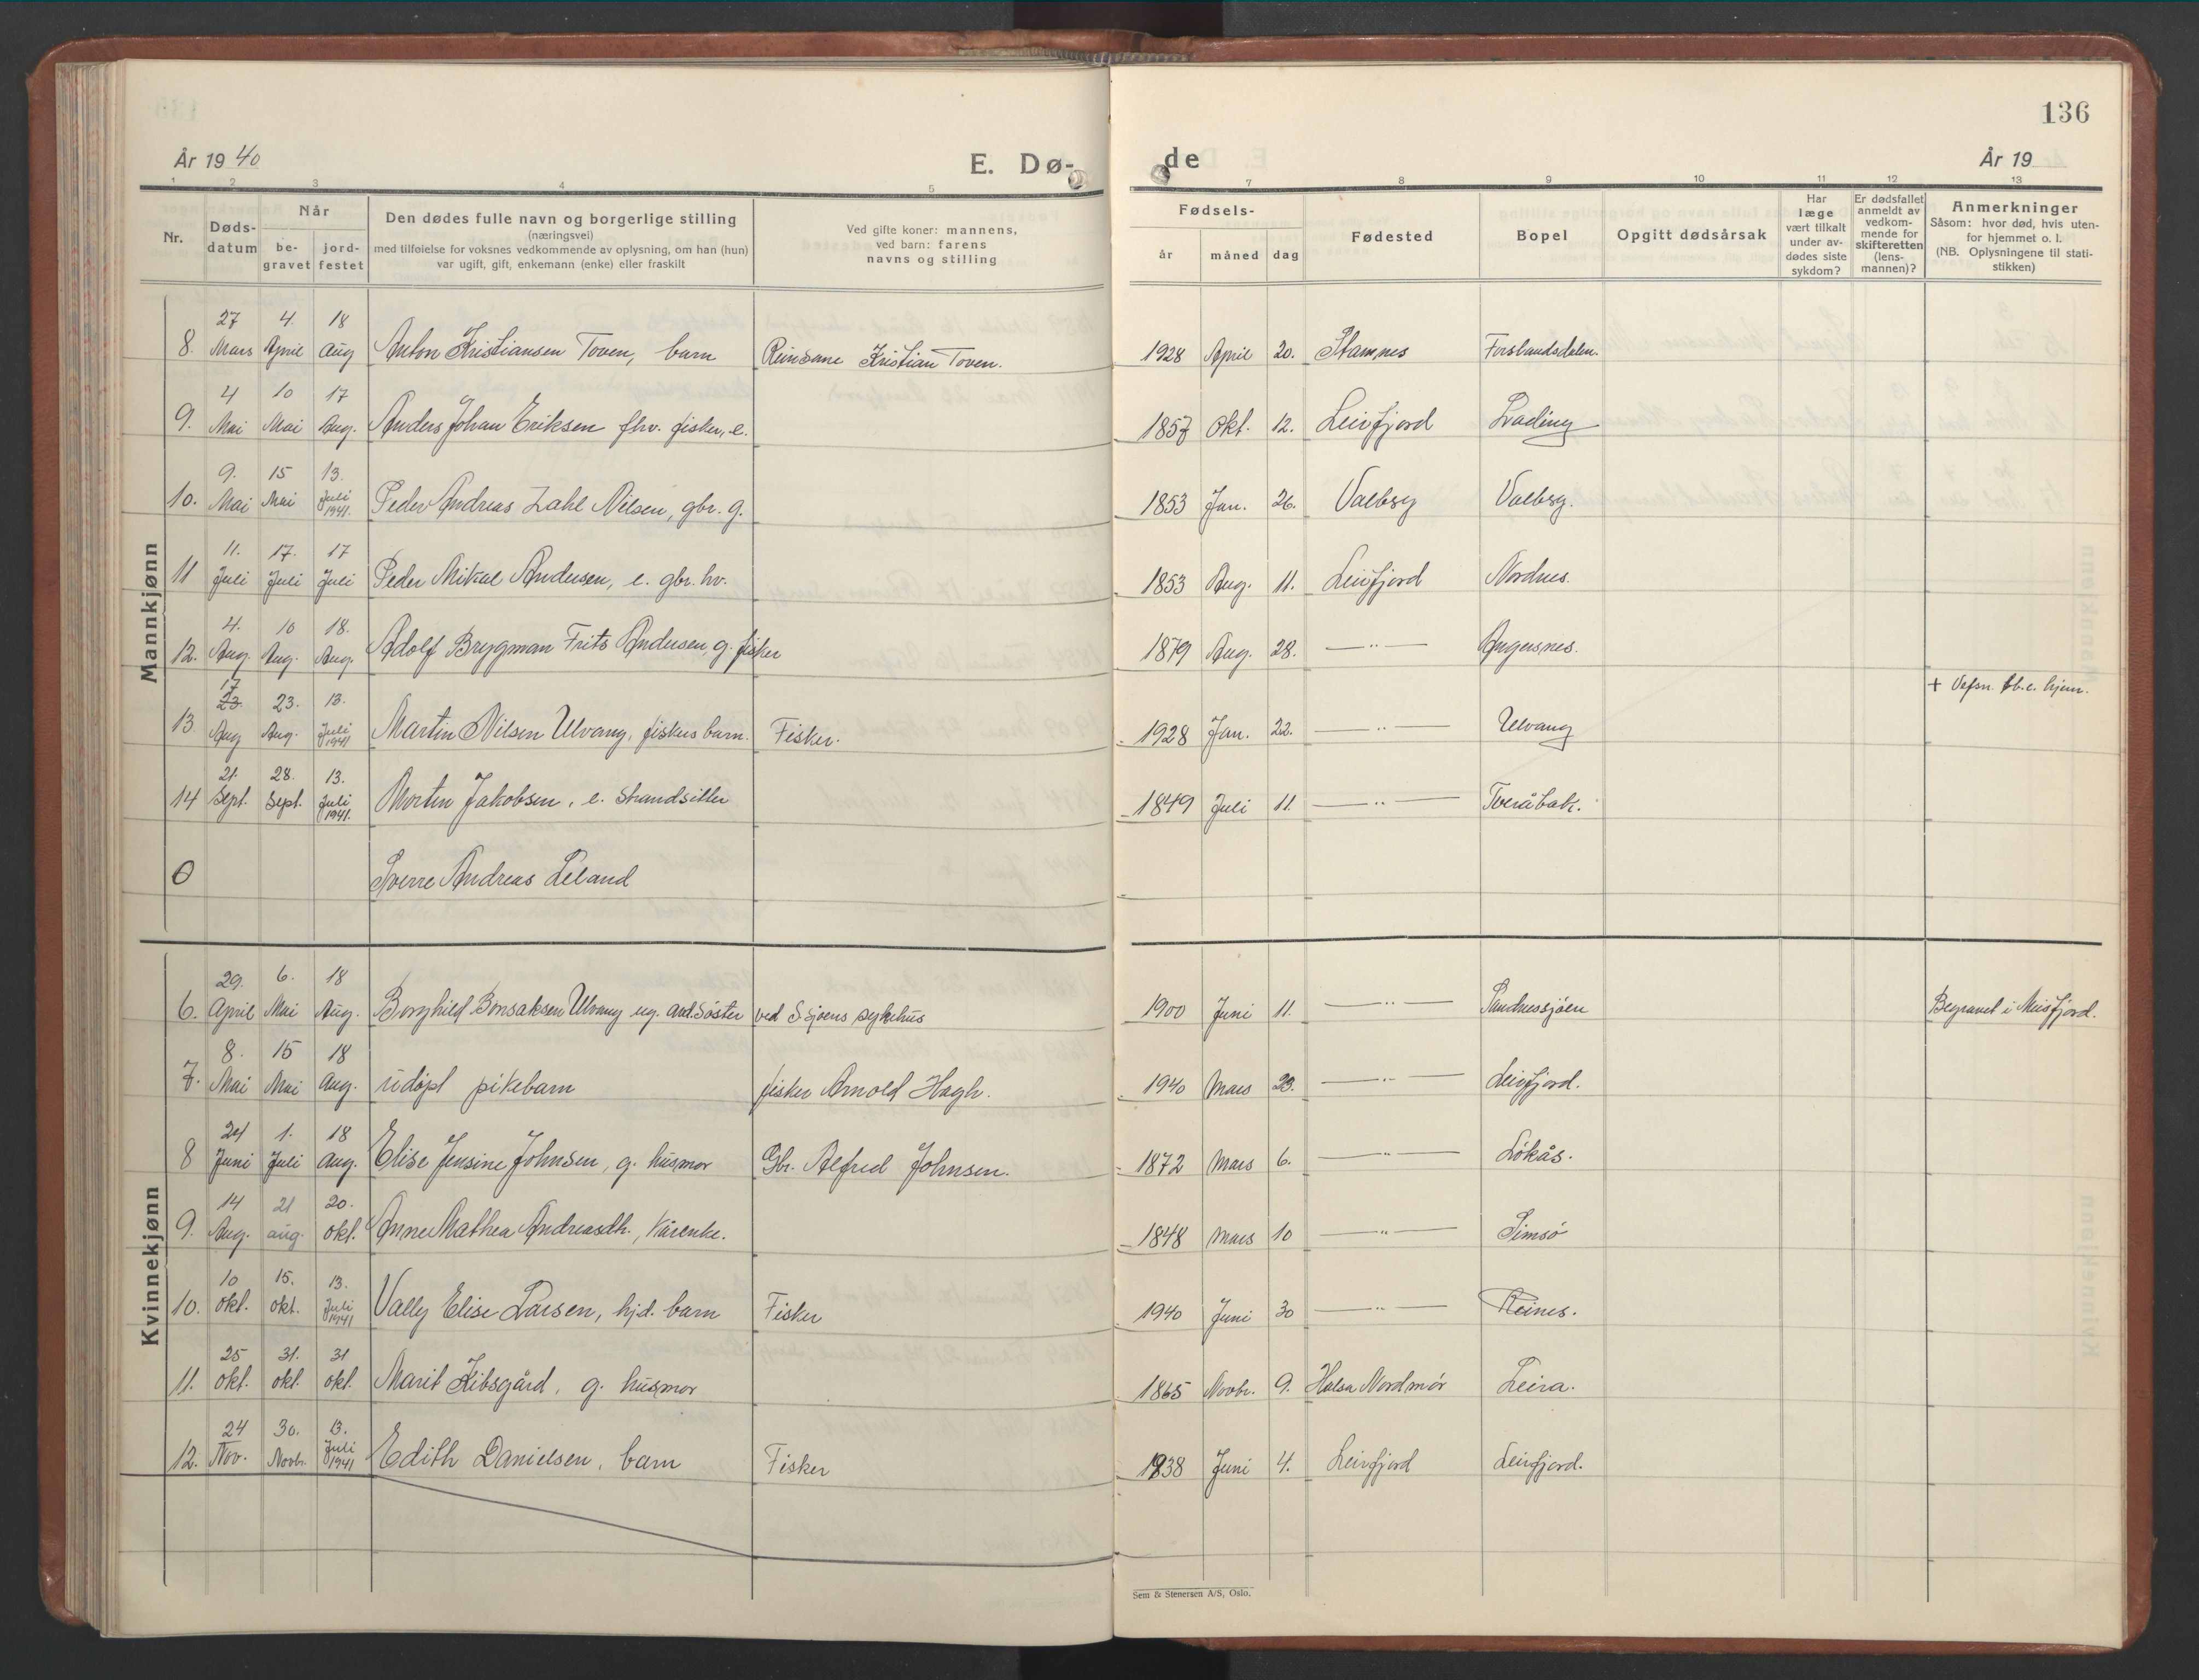 136
År 1940
E. Dø-
de
År 19
1 2 3 4 5 7 8 9 10 11 12 13
Nr.
Døds-
datum
Når
be-
gravet
jord-
festet
Den dødes fulle navn og borgerlige stilling
(næringsvei)
med tilføielse for voksnes vedkommende av oplysning, om han (hun)
var ugift, gift, enkemann (enke) eller fraskilt
Ved gifte koner: mannens,
ved barn: farens
navns og stilling
Fødsels-
år måned dag
Fødested
Bopel
Opgitt dødsårsak
Har
læge
vært tilkalt
under av-
dødes siste
sykdom?
Er dødsfallet
anmeldt av
vedkom-
mende for
skifteretten
(lens-
mannen)?
Anmerkninger
Såsom: hvor død, hvis uten-
for hjemmet o. l.
(NB. Oplysningene til stati-
stikken)
Mannkjønn
27 4. 18
8. Mars April Aug Anton Kristiansen Toven, barn Reinsame Kristian Toven. 1928 April 20. Stamnes Forslandsdalen.
4 10 17
9. Mai Mai Aug. Anders Johan Eriksen fhv. fisker, e. 1857 Okt. 12. Leirfjord Leading
9. 15 13.
10. Mai Mai Juli 1941. Peder Andreas Zahl Nilsen, gbr. g. 1853 Jan. 26. Valbsy Valbsy.
11. 17. 17
11 Juli Juli Juli Peder Mikal Andersen, e. gbr. hv. 1853 Aug. 11. Leirfjord Nordnes.
4. 10 18.
12. Aug. Aug. Aug. Adolf Brygman Frits Andersen, g. fisker 1879 Aug. 28. —"— Angersnes.
17
23 23. 13.
13. Aug Aug. Juli 1941 Martin Nilsen Ulvang, fiskers barn. Fisker. 1928 Jan. 22. —"— Ulvang + Vefsn. tb.c. hjem.
21. 28. 13.
14 Sept. Sept. Juli 1941. Morten Jakobsen, e. strandsitter 1849 Juli 11. —"— Tveråbak.
0 Sverre Andreas Leland
Kvinnekjønn
29. 6. 18
6. April Mai Aug. Borghild Bonsaksen Ulvang ug. avd. søster ved S.sjøens sykehus 1900 Juni 11. —"— Sandnessjøen Begravet i Meisfjord.
8. 15 18
7. Mai Mai Aug. udøpt pikebarn fisker Arnold Hagh. 1940 Mars 23. —"— Leirfjord.
24 1. 18
8 Juni Juli Aug. Elise Jensine Johnsen, g. husmor Gbr. Alfred Johnsen. 1872 Mars 6. —"— Løkås.
14 21 20.
9. Aug. aug. okt. Anne Mathea Andreasdh., kårenke. 1848 Mars 10 —"— Simsø
10 15. 13.
10. okt. okt. Juli 1941 Vally Elise Larsen, hjd. barn Fisker 1940 Juni 30 —"— Reines.
25 31. 31
11. okt. okt. okt. Marit Kibsgård, g. husmor 1865 Novbr. 9. Halsa Nordmør Leira.
24 30. 13.
12. Nov. Novbr. Juli 1941 Edith Danielsen, barn Fisker 1938 Juni 4. Leirfjord Leirfjord.
Sem & Stenersen A/S, Oslo.